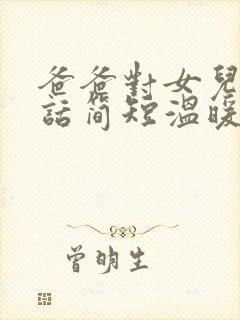 爸爸對女兒
話簡短溫暖
曾明生